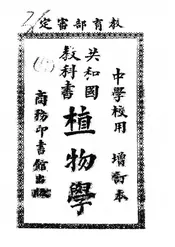 教育部審定
中學校用 增訂本
共和國
教科書
植物學
商務印書館出版